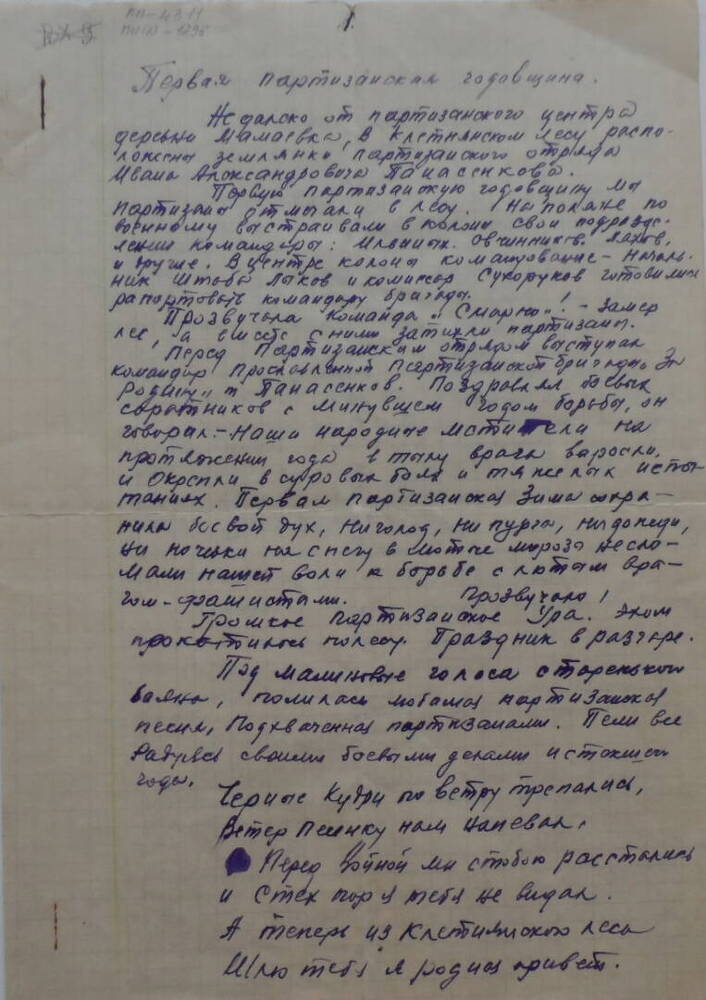 1.
Первая партизанская годовщина.
Недалеко от партизанского центра
деревни Мамаевка, в Клетнянском лесу распо-
ложены землянки партизанского отряда
Ивана Александровича Панасенкова.
Первую партизанскую годовщину мы
партизаны отмечали в лесу. На поляне по
военному выстраивали в колонн свои подразде-
ления командиры: Ильиных. Овчинников. Ляхов,
и другие. В центре колоны командование - началь-
ник штаба Лыков и комиссар Сухоруков готовились
рапортовать командору бригады.
Прозвучала команда „Смирно"! - Замер
лес, а вместе с ними затихли партизаны.
Перед Партизанским отрядом выступал
командир прославленной партизанской бригады „За
Родину" т. Панасенков. Поздравляя боевых
соратников с минувшем годом борьбы, он
говорил: - Наши народные мстители на
протяжении года в тылу врага выросли,
и окрепли в суровых боях и тяжелых испы-
таниях. Первая партизанская Зима закра-
нила боевой дух, ни голод, ни пурга, ни дожди,
ни ночевки на снегу в лютые морозы не сло-
мали нашей воли к борьбе с лютым вра-
гом - фашистами. Прозвучало!
Громкое партизанское Ура. Эхом
прокатилось по лесу. Праздник в разгаре.
Под малиновые голоса старенького
баяна, полилась любимая партизанская
песня, Подхваченная партизанами. Пели все
Радуясь своими боевыми делами истекшего
года.
Черные Кудри по ветру трепались,
Ветер Песенку нам напевал,
Перед Войной мы с тобою расстались
и С тех пор я тебя не видал.
А теперь из Клетнянского леса
Шлю тебе я родная привет.